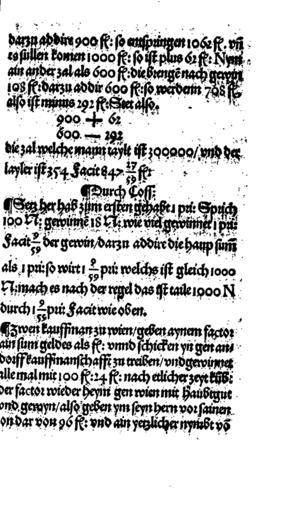 darzu addire 900 fl: so entspringen 1062 fl. vñ
es sullen komen 1000 fl: so ist plus 62 fl: Nym
ain ander zal als 600 fl: die brengē nach gewin
108 fl: darzu addir 600 fl: so werden 708 fl.
also ist minus 292 fl: Setz also.
900 + 62
600 — 292
die zal welche mann taylt ist 300000/ vnd der
tayler ist 354 Facit 847 27/59 fl:
¶Durch Coss:
¶Setz her hab zum ersten gehabt 1 pri: Sprich
100 N: gewinnē 18 N: wie viel gewinnet 1 pri:
Facit 9/ der gewin/darzu addire die haup sum
als 1 pri: so wirt 1 9/ pri: welchs ist gleich 1000
N: mach es nach der regel das ist taile 1000 N
durch 1 9/ pri: Facit wie oben.
¶Zwen kauffman zu wien/geben aynem factor
ain sum geldes als fl: vnnd schicken yn gen an/
dorff kauffmanschafft zu treiben/vnd gewinnet
alle mal mit 100 fl: 24 fl: nach etlicher zeyt kūbt
der factor wieder heym gen wien mit haubtgut
vnd gewyn/also geben ym seyn hern vor seinen
on dar von 96 fl: vnd ain yetzlicher nymbt vō